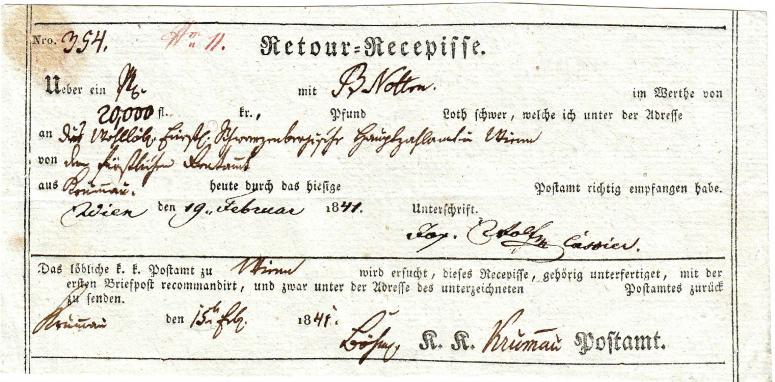 Nro. 354. 11. Retour-Recepisse.
Ueber ein mit B Noten. im Werthe von
20,000 fl. kr., Pfund Loth schwer, welche ich unter der Adresse
an die Wohllöb. Fürstl. Schwarzenbergische Hauptzahlamt in Wien
von dem fürstlichen Rentamt
aus Krummau. heute durch das hiesige Postamt richtig empfangen habe.
Wien den 19. Februar 1841. Unterschrift.
Jos. Wolf Cassier.
Das löbliche k. k. Postamt zu Wien wird ersucht, dieses Recepisse, gehörig unterfertiget, mit der
ersten Briefpost recommandirt, und zwar unter der Adresse des unterzeichneten Postamtes zurück
zu senden.
Krummau den 15 Feb. 1841.
Böhm. K. K. Krumau Postamt.